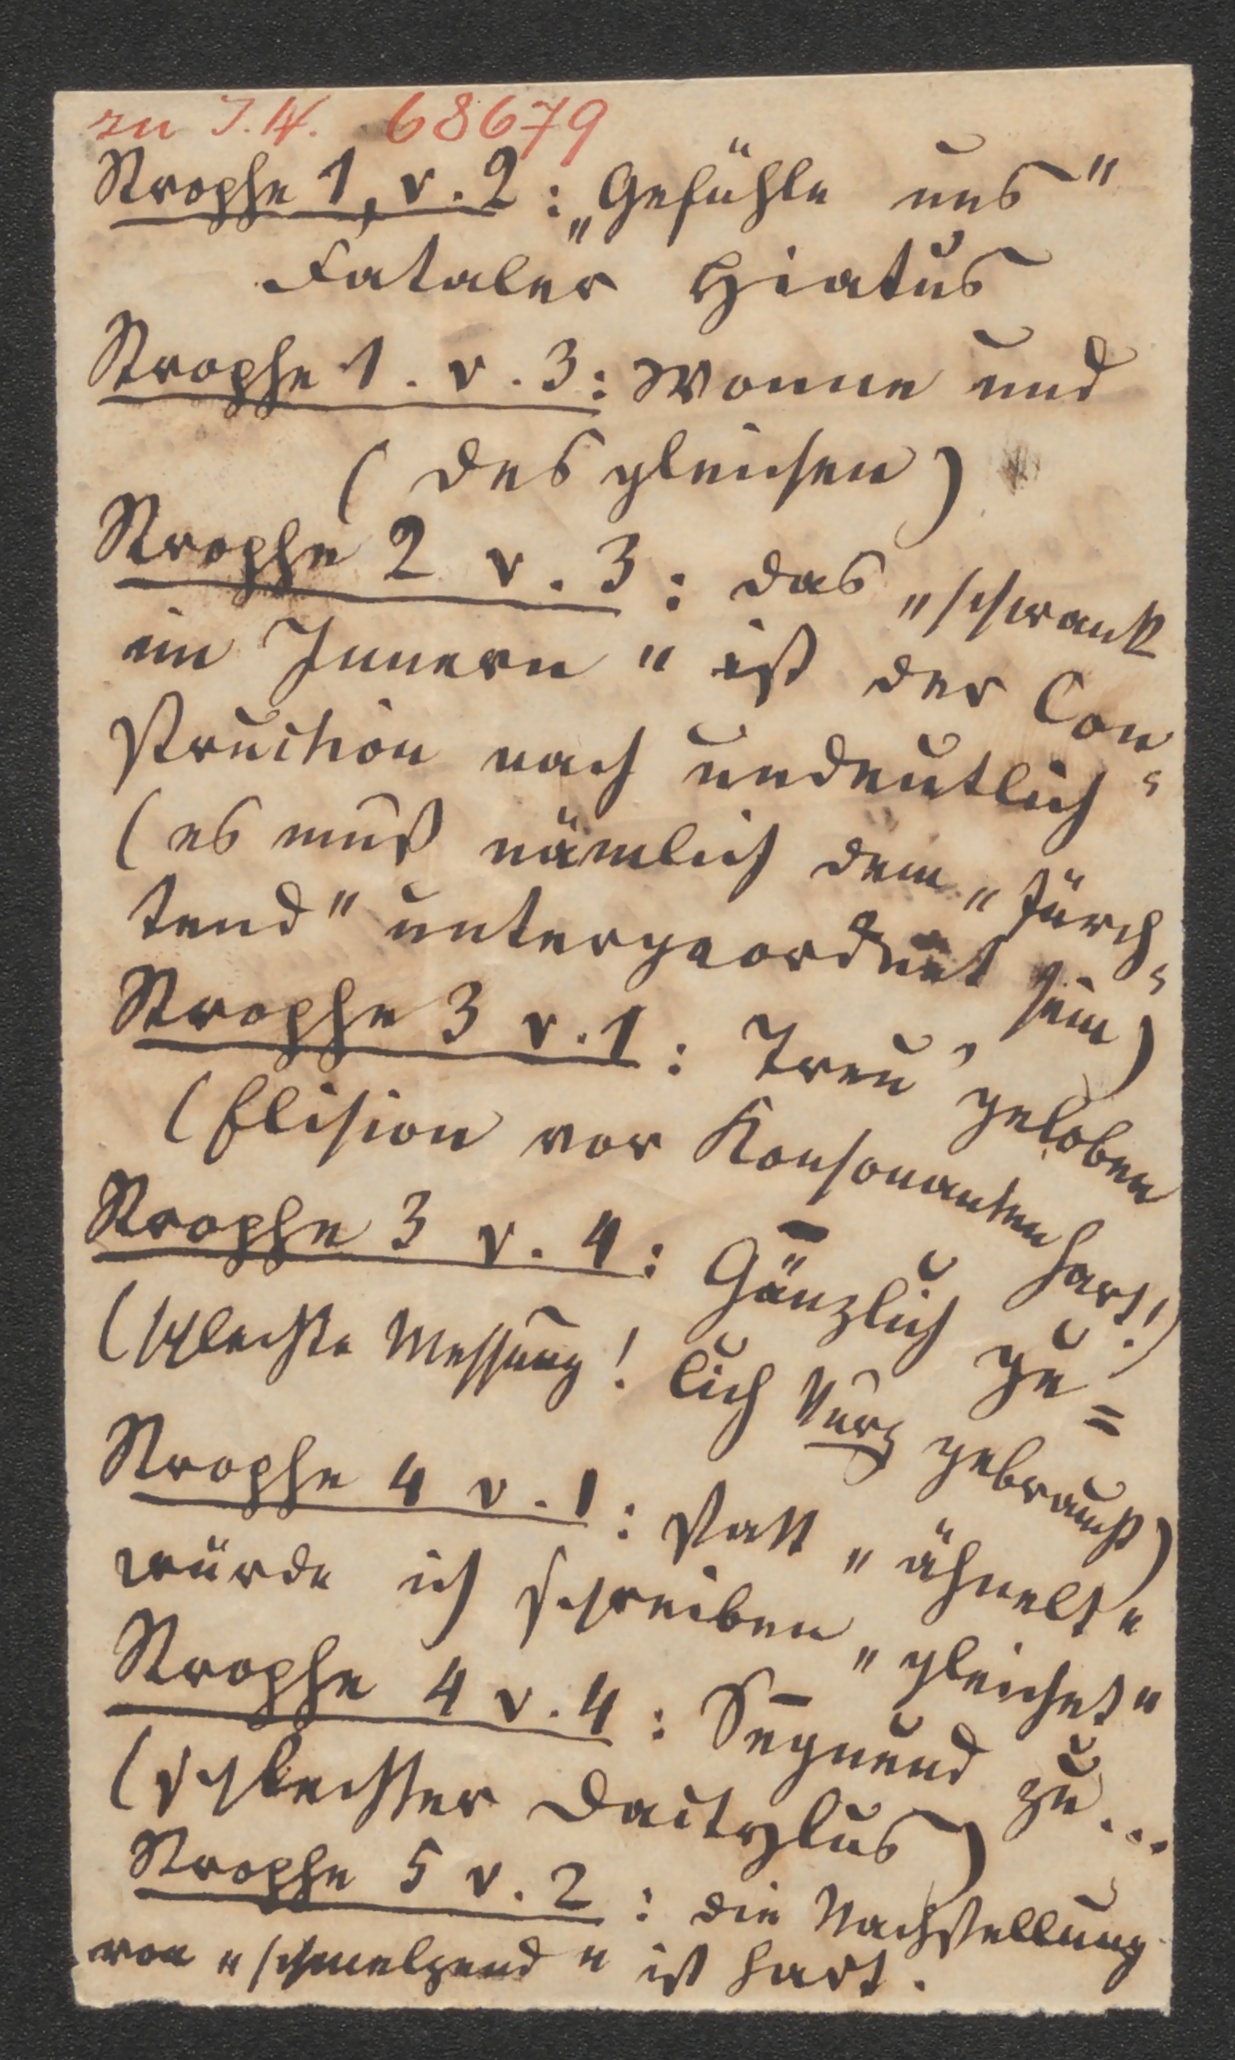 zu I.N. 68679
Strophe 1, v. 2: „Gefühle uns"
Fataler Hiatus
Strophe 1. v. 3: Wonne und
(desgleichen)
Strophe 2 v. 3: das „schwank
im Innern" ist der Con-
struction nach undeutlich
(es muß nämlich dem „fürch-
tend" untergeordnet sein)
Strophe 3 v. 1: Treu' geloben
(Elision vor Konsonanten hart!)
Strophe 3 v. 4: Gänzlich ge=
(schlechte Messung! lich kurz gebraucht)
Strophe 4 v. 1: statt „ähnelt"
würde ich schreiben „gleichet"
Strophe 4 v. 4: Segnend zu...
(schlechter Dactylus)
Strophe 5 v. 2: die Nachstellung
von „schmelzend" ist hart.